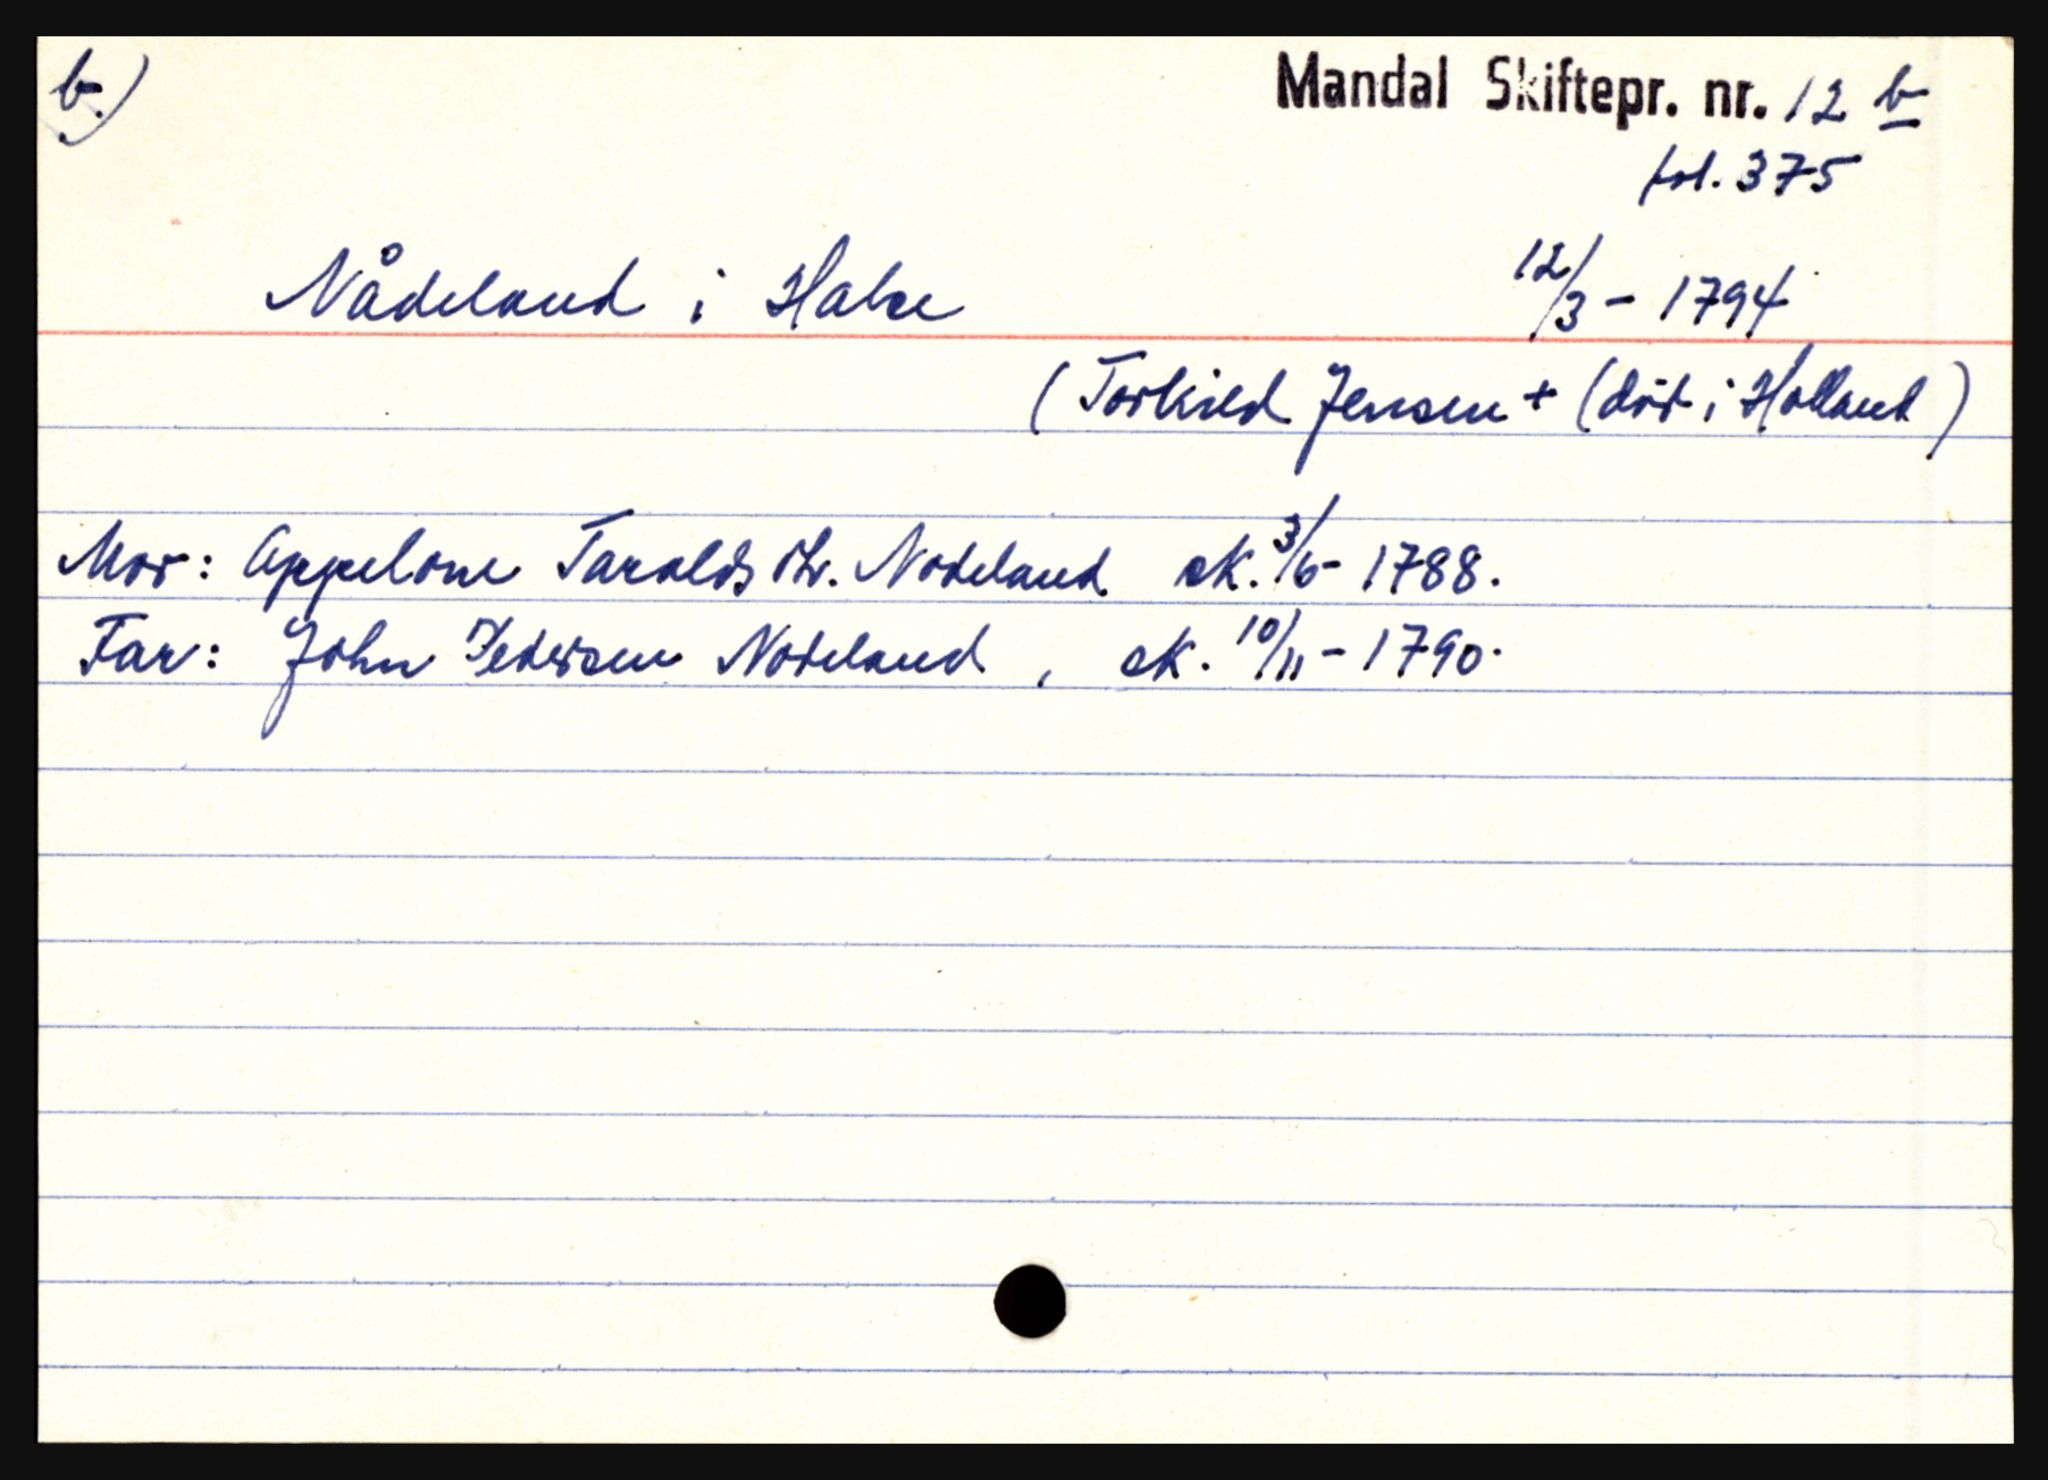 b.)
Mandal Skiftepr. nr. 12 b
fol. 375
Nådeland i Halse 12/3 - 1794
(Torkild Jensen + (död i Holland)
Mor: Appelone Taralds dtr. Nodeland sk. 3/6 - 1788.
Far: John Pedersen Nodeland, sk. 10/11 - 1790.